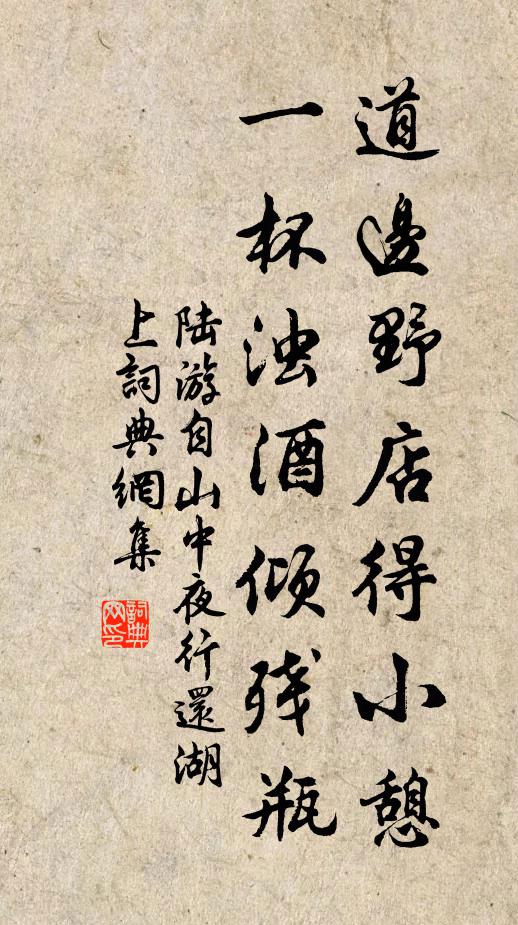 道邊野店得小憩
一杯浊酒傾残瓶
陆游自山中夜行還湖
上詞典網集
詞典网印